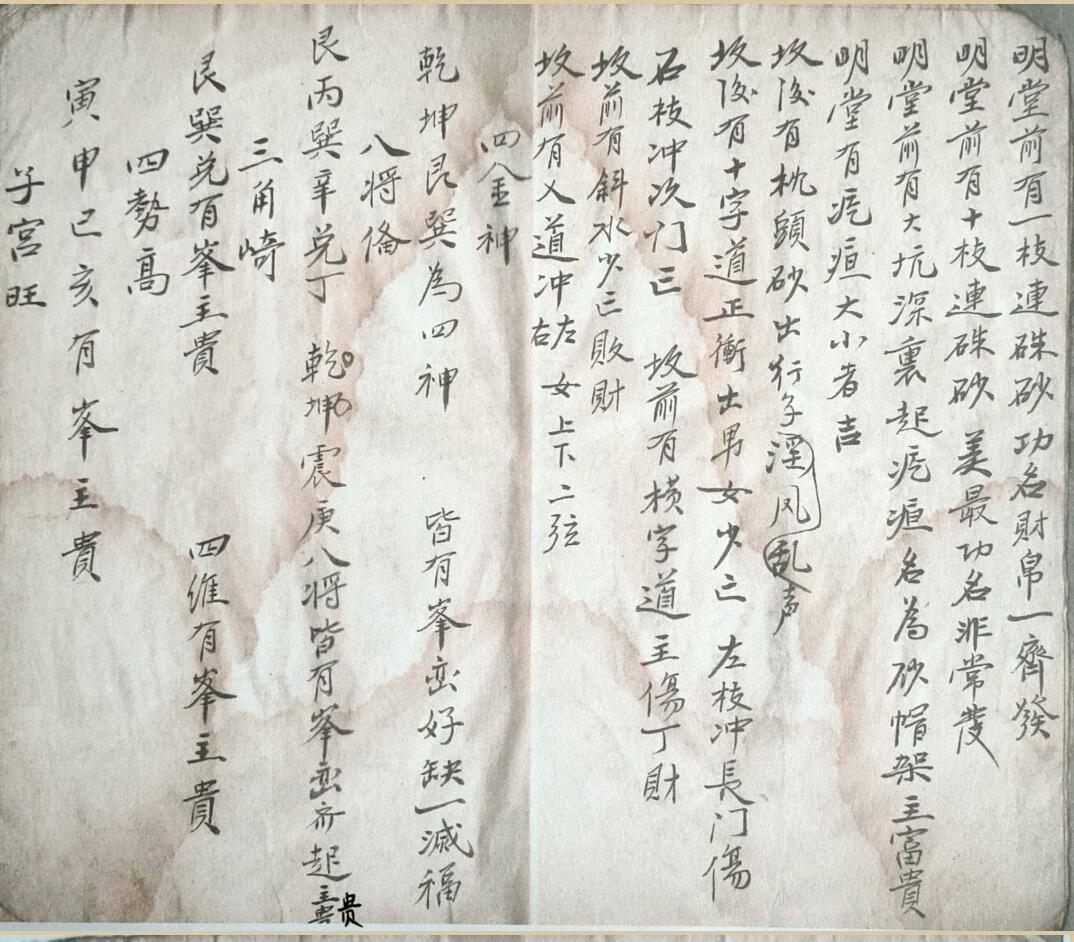 明堂前有一枝連硃砂 功名財帛一齊發
明堂前有十枝連硃砂 美最功名非常發
明堂前有大坑深裏起疙疸名為砂帽架主富貴
明堂有疙疸大小者吉
坟後有枕頭砂出行子淫风乱声
坟後有十字道正衝出男女少亡 左枝冲長门傷
右枝冲次门亡 坟前有横字道主傷丁財
坟前有斜水少亡敗財
坟前有乂道冲左右女上下二弦
四金神
乾坤艮巽為四神 皆有峯峦好缺一減福
八将俻
艮丙巽辛兑丁 乾坤震庚八将皆有峯峦齐起主貴
三角崎
艮巽兑有峯主貴 四維有峯主貴
四勢高
寅申巳亥有峯主貴
子宫旺